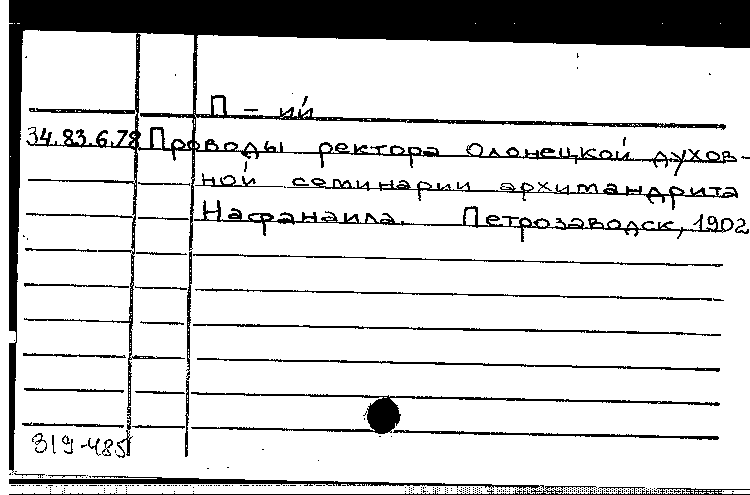 П - ий
34.83.6.78 Проводы ректора Олонецкой духов-
ной семинарии архимандрита
Нафанаила. Петрозаводск, 1902
319-485